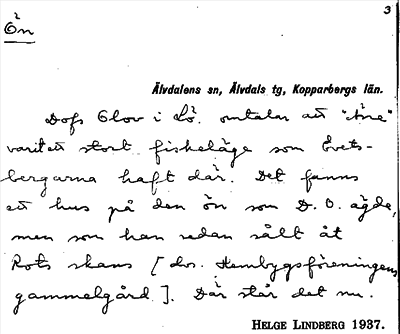 Ön
3
Älvdalens sn, Älvdals tg, Kopparbergs län.
Dofs Olov i Lö. omtalar att "Åne"
varit ett stort fiskeläge som Evets-
bergarna haft där. Det fanns
ett hus på den ön som D. O. ägde,
men som han sedan sålt åt
Rots skans [dvs. Hembygsföreningens
gammelgård]. Där står det nu.
HELGE LINDBERG 1937.